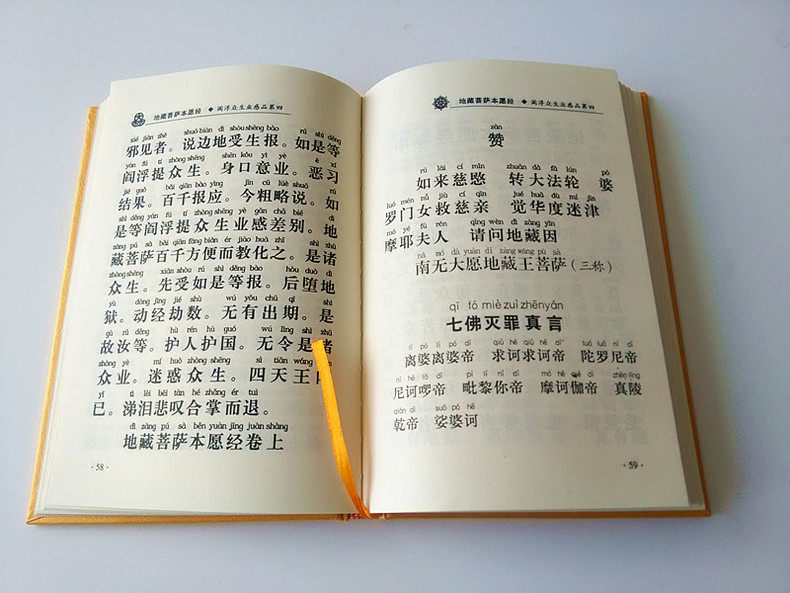 地藏菩萨本愿经 ◆ 阎浮众生业感品第四
xié jiàn zhě shuō biān dì shòu shēng bào rú shì děng
邪见者。说边地受生报。如是等
yán fú tí zhòng shēng shēn kǒu yì yè è xí
阎浮提众生。身口意业。恶习
jié guǒ bǎi qiān bào yìng jīn cū lüè shuō rú
结果。百千报应。今粗略说。如
shì děng yán fú tí zhòng shēng yè gǎn chā bié dì
是等阎浮提众生业感差别。地
zàng pú sà bǎi qiān fāng biàn ér jiào huà zhī shì zhū
藏菩萨百千方便而教化之。是诸
zhòng shēng xiān shòu rú shì děng bào hòu duò dì
众生。先受如是等报。后堕地
yù dòng jīng jié shù wú yǒu chū qī shì
狱。动经劫数。无有出期。是
gù rǔ děng hù rén hù guó wú lìng shì zhū
故汝等。护人护国。无令是诸
zhòng yè mí huò zhòng shēng sì tiān wáng
众业。迷惑众生。四天王
yǐ tì lèi bēi tàn hé zhǎng ér tuì
已。涕泪悲叹合掌而退。
dì zàng pú sà běn yuàn jīng juàn shàng
地藏菩萨本愿经卷上
·58·
地藏菩萨本愿经 ◆ 阎浮众生业感品第四
zàn
赞
rú lái cí mǐn zhuǎn dà fǎ lún pó
如来慈愍 转大法轮 婆
luó mén nǚ jiù cí qīn jué huá dù mí jīn
罗门女救慈亲 觉华度迷津
mó yé fū rén qǐng wèn dì zàng yīn
摩耶夫人 请问地藏因
ná mó dà yuàn dì zàng wáng pú sà
南无大愿地藏王菩萨(三称)
qī fó miè zuì zhēn yán
七佛灭罪真言
lí pó lí pó dì qiú hē qiú hē dì tuó luó ní dì
离婆离婆帝 求诃求诃帝 陀罗尼帝
ní hē lá dì pí lí nǐ dì mó hē qié dì zhēn líng
尼诃啰帝 毗黎你帝 摩诃伽帝 真陵
qián dì suō pó hē
乾帝 娑婆诃
·59·